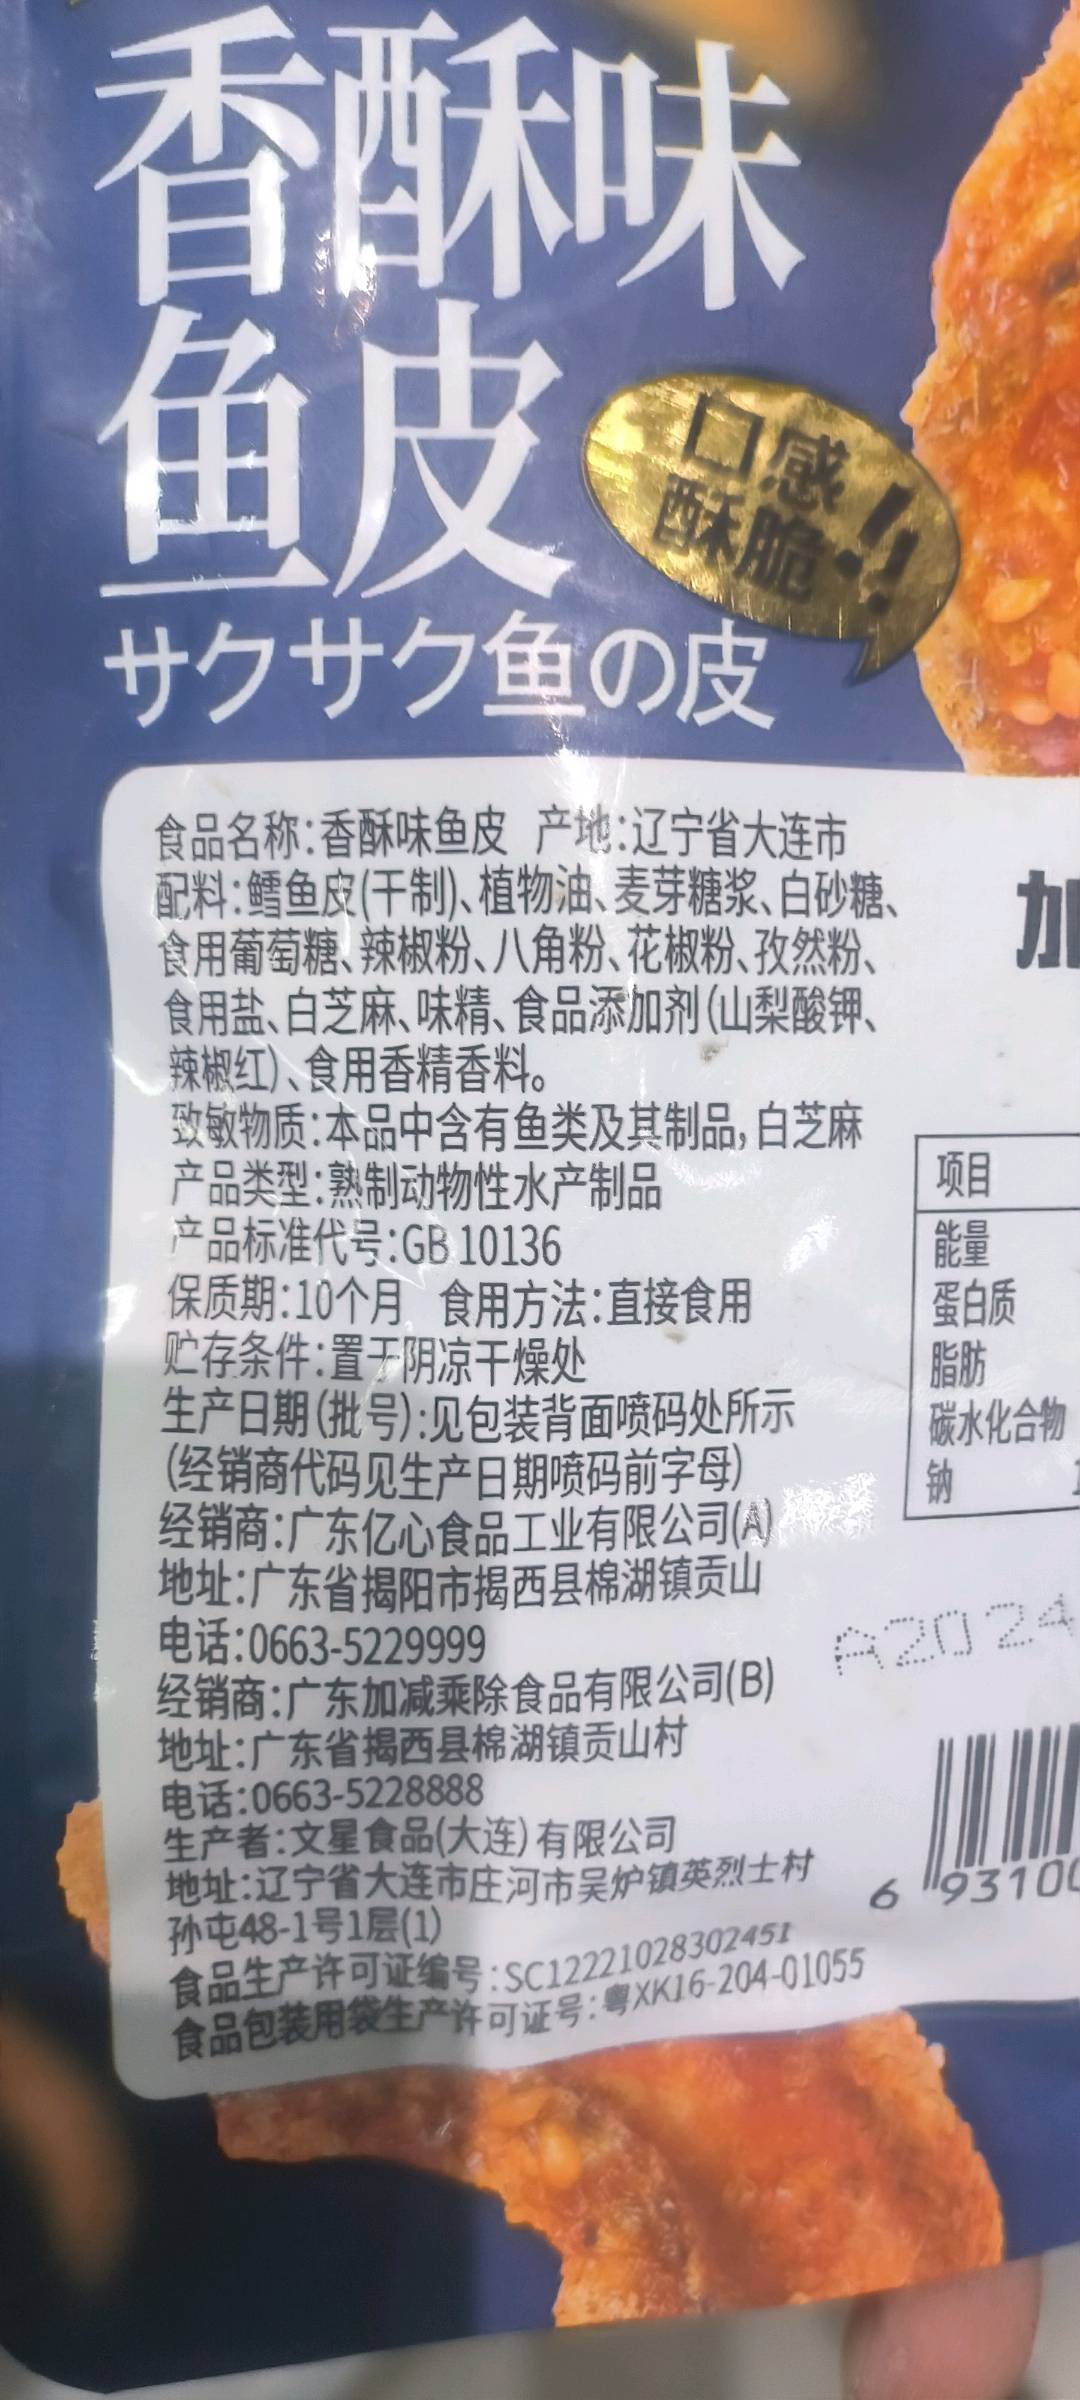 香酥味
鱼皮
口感
酥脆!!
サクサク鱼の皮
食品名称:香酥味鱼皮 产地:辽宁省大连市
配料:鳕鱼皮(干制)、植物油、麦芽糖浆、白砂糖、
食用葡萄糖、辣椒粉、八角粉、花椒粉、孜然粉、
食用盐、白芝麻、味精、食品添加剂(山梨酸钾、
辣椒红)、食用香精香料。
致敏物质:本品中含有鱼类及其制品,白芝麻
产品类型:熟制动物性水产制品
产品标准代号:GB 10136
保质期:10个月 食用方法:直接食用
贮存条件:置于阴凉干燥处
生产日期(批号):见包装背面喷码处所示
(经销商代码见生产日期喷码前字母)
经销商:广东亿心食品工业有限公司(A)
地址:广东省揭阳市揭西县棉湖镇贡山
电话:0663-5229999
经销商:广东加减乘除食品有限公司(B)
地址:广东省揭西县棉湖镇贡山村
电话:0663-5228888
生产者:文星食品(大连)有限公司
地址:辽宁省大连市庄河市吴炉镇英烈士村
孙屯48-1号1层(1)
食品生产许可证编号:SC12221028302451
食品包装用袋生产许可证号:粤XK16-204-01055
加
项目
能量
蛋白质
脂肪
碳水化合物
钠
A2024
6 93100